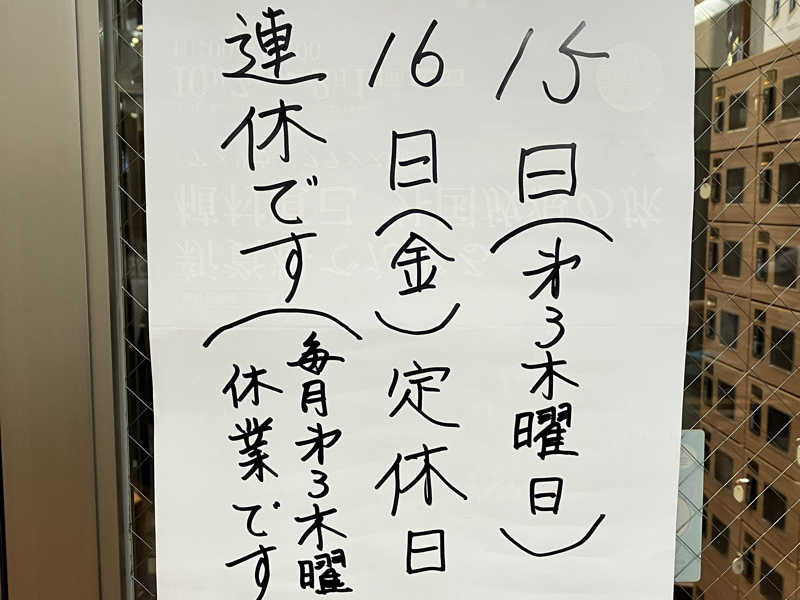 15日(㐧3木曜日)
16日(金)定休日
連休です
(毎月㐧3木曜
休業です